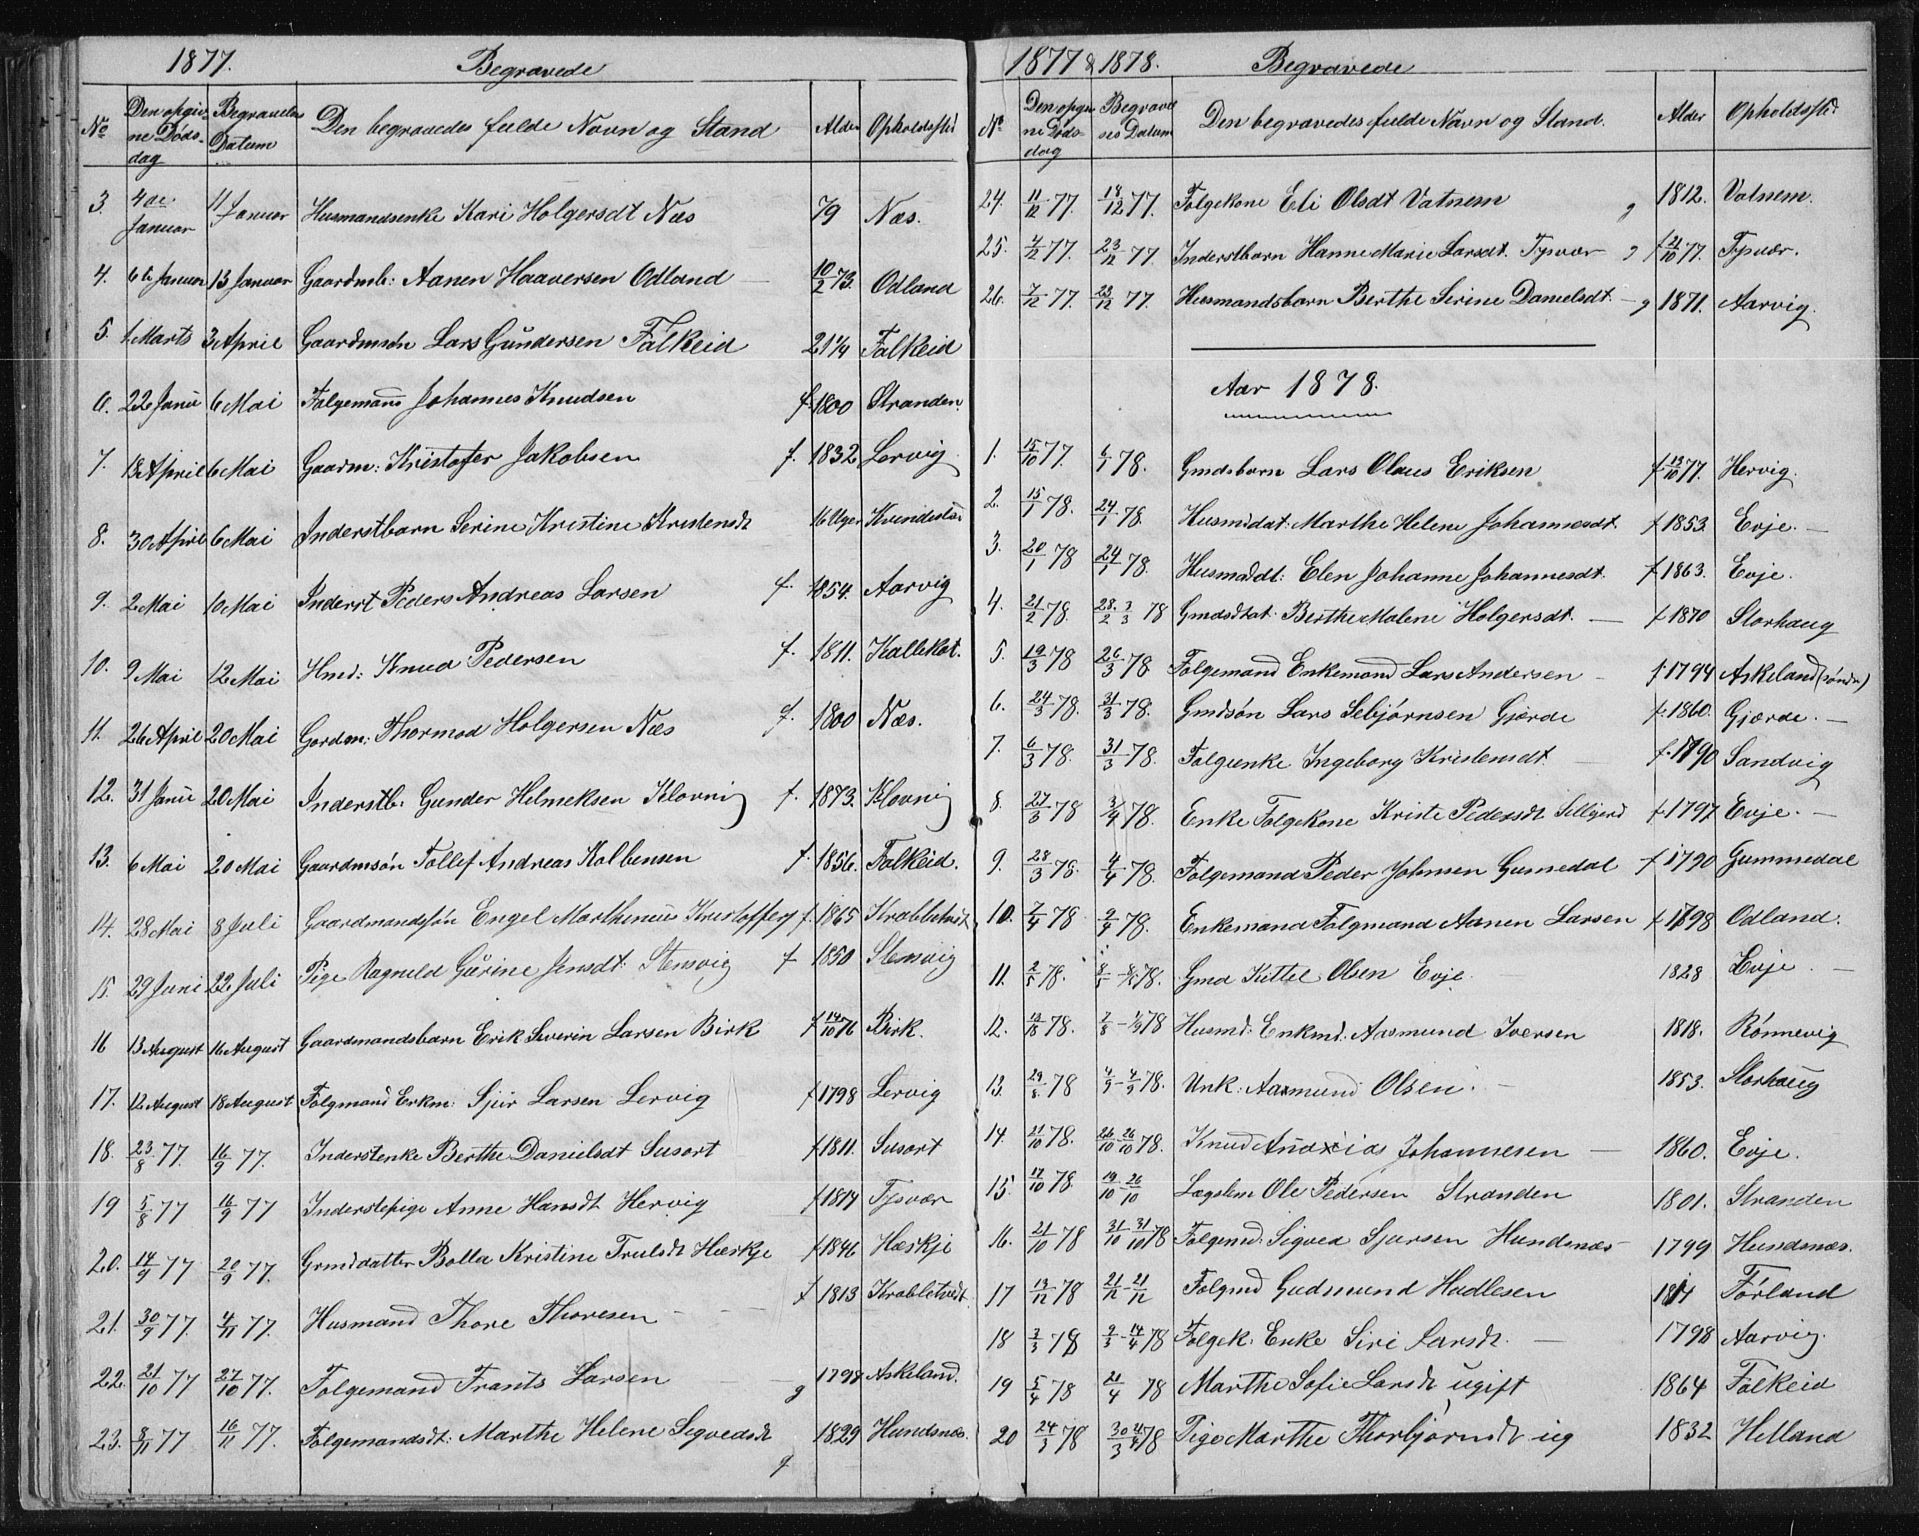 1877. Begravede
No Den opgivne Døds-dag Begravelses Datum Den begravedes fulde Navn og Stand Alder Opholdssted
3. 4de Januar 11 Januar Husmandsenke Kari Holgersdt Næs 79 Næs.
4. 6te Januar 13 Januar Gaardmb: Aanen Haaversen Odland 10/2 73. Odland
5. 1 Marts 3 April Gaardmsøn Lars Gundersen Falkeid 21 1/4 Falkeid
6. 22 Janu 6 Mai Folgemand Johannes Knudsen f. 1800 Stranden.
7. 18 April 6 Mai Gaardm: Kristofer Jakobsen f. 1832 Lervig.
8. 30 April 6 Mai Inderstbarn Serine Kristine Kristensdt 16 Uger
9. 2 Mai 10 Mai Inderst Peders Andreas Larsen f. 1854. Aarvig
10. 9 Mai 12 Mai Hmd: Knud Pedersen f. 1811. Kallekot.
11. 26 April 20 Mai Gardm: Thormod Holgersen Næs f. 1800 Næs.
12. 31 Janu 20 Mai Inderstb: Gunder Helmeksen Klovnig f. 1873. Klovnig
13. 6 Mai 20 Mai Gaardmsøn Tollef Andreas Kolbensen f. 1856. Falkeid.
14. 28 Mai 8 Juli Gaardmandssøn Engel Marthinius Kristoffers f. 1865 Krabbetvedt
15. 29 Juni 22 Juli Pige Ragnild Gurine Jensdt Stensvig f 1850 Stensvig
16 13 August 16 August Gaardmandsbarn Erik Severin Larsen Birk f 14/10 76 Birk.
17. 12 August 18 August Folgmand Enkm: Sjur Larsen Lervig f 1798 Lervig
18. 23/8 77. 16/9 77. Inderstenke Berthe Danielsdt Susort f 1811. Susort
19 5/8 77 16/9 77 Inderstepige Anne Hansdt Hervig f 1814 Tysvær
20. 14/9 77 20/9 77. Grmddatter Bolla Kristine Trulsdt Hæskje f 1846 Hæskje
21. 30/9 77. 4/11 77. Husmand Thore Thoresen f 1813 Krabletvedt
22. 21/10 77 27/10 77. Folgemand Frants Larsen g 1797 Askeland.
23. 8/11 77 16/11 77. Folgemandsdt: Marthe Helene Sigvedsdt g 1829 Hundsnæs.
1877 & 1878. Begravede
No Den opgivne Døds-dag Begravelses Datum Den begravedes fulde Navn og Stand. Alder Opholdssted
24. 11/12 77. 18/12 77. Folgekone Eli Olsdt Vatnem g 1812. Vatnem.
25. 4/12 77. 23/12 77. Inderstbarn Hanne Marie Larsdt. Tysvær g f 21/10 77. Tysvær.
26. 7/12 77. 23/12 77. Husmandsbarn Berthe Serine Danielsdt. g 1871. Aarvig.
Aar 1878.
1. 15/10 77. 6/1 78. Gmdsbarn Lars Olaus Eriksen f 13/10 77. Hervig.
2. 15/1 78. 24/1 78. Husmddat: Marthe Helene Johannesdt. f 1853. Evje.
3. 20/1 78 24/1 78. Husmddt: Elen Johanne Johannesdt. f 1863. Evje.
4. 21/2 78. 28/2 3/3 78 Gmdsdtat. Berthe Malene Holgersdt. f 1870 Storhaug
5. 19/3 78 26/3 78 Folgemand Enkemand Lars Andersen f. 1794 Askeland (søndre)
6. 24/3 78. 31/3 78. Gmdsøn Lars Sebjørnsen Gjerde f. 1860. Gjerde.
7. 6/3 78. 31/3 78. Folgeenke Ingeborg Kristensdt f. 1790 Sandvig
8. 27/3 78 3/4 78. Enke Folgekone Kriste Pedersdt f 1797 Evje.
9. 28/3 78. 4/4 78. Folgemand Peder Johnsen Gumedal f 1790 Gummedal
10. 7/4 78 9/4 78. Enkemand Folgmand Aanen Larsen f 1898 Odland.
11. 2/5 78. 8/5 - 8/5 78. Gmd Kittel Olsen Evje. 1828 Evje.
12. 78. 78 Husmd: Enkmd: Aasmund Iversen 1818. Rønnevig
13. 29/8 78 4/9 - 4/9 78. Unk: Aasmund Olsen. 1853. Storhaug
14. 21/10 78. 26/10 26/10 78. Knud Andreas Johannesen 1860. Evje.
15. 17/10 78 19/10 - 26/10 Lægslem Ole Pedersen Stranden 1801. Stranden
16. 21/10 78 31/10 - 31/10 78 Folgemd. Sigved Sjursen Hundsnæs 1799 Hundsnæs.
17 13/12 78 21/12 - 21/12 Folgmd Gudmund Hadlesen 1814 Førland
18 3/3 78 9/3 - 14/4 78 Folgek. Enke Siri Larsdt. 1798 Aarvig.
19 5/4 78 21/4 78 Marthe Sofie Larsdt ugift 1864 Falkeid
20 24/3 78 30/3 21/4 78 Pige Marthe Thorbjørnsdt ug 1832 Helland